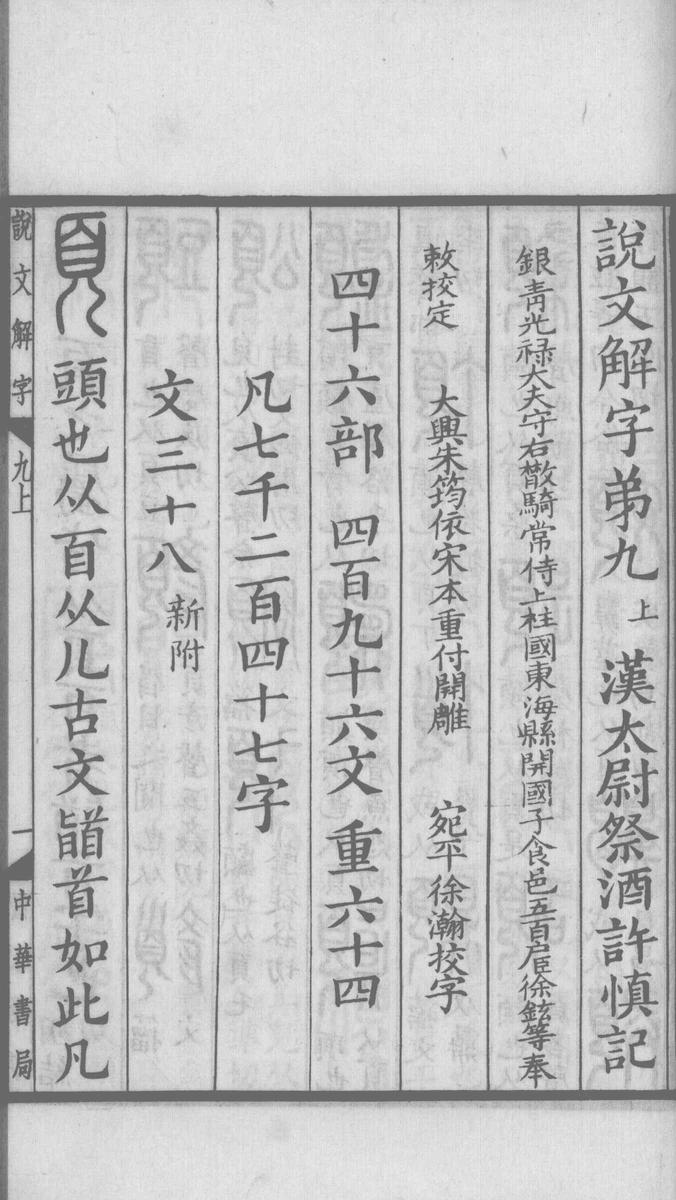 說文解字弟九 上 漢太尉祭酒許慎記
銀青光祿大夫守右散騎常侍上柱國東海縣開國子食邑五百戶臣徐鉉等奉
敕挍定 大興朱筠依宋本重付開雕 宛平徐瀚挍字
四十六部 四百九十六文 重六十四
凡七千二百四十七字
文三十八 新附
頁 頭也从𦣻从儿古文䭫首如此凡
說文解字 九上 一 中華書局